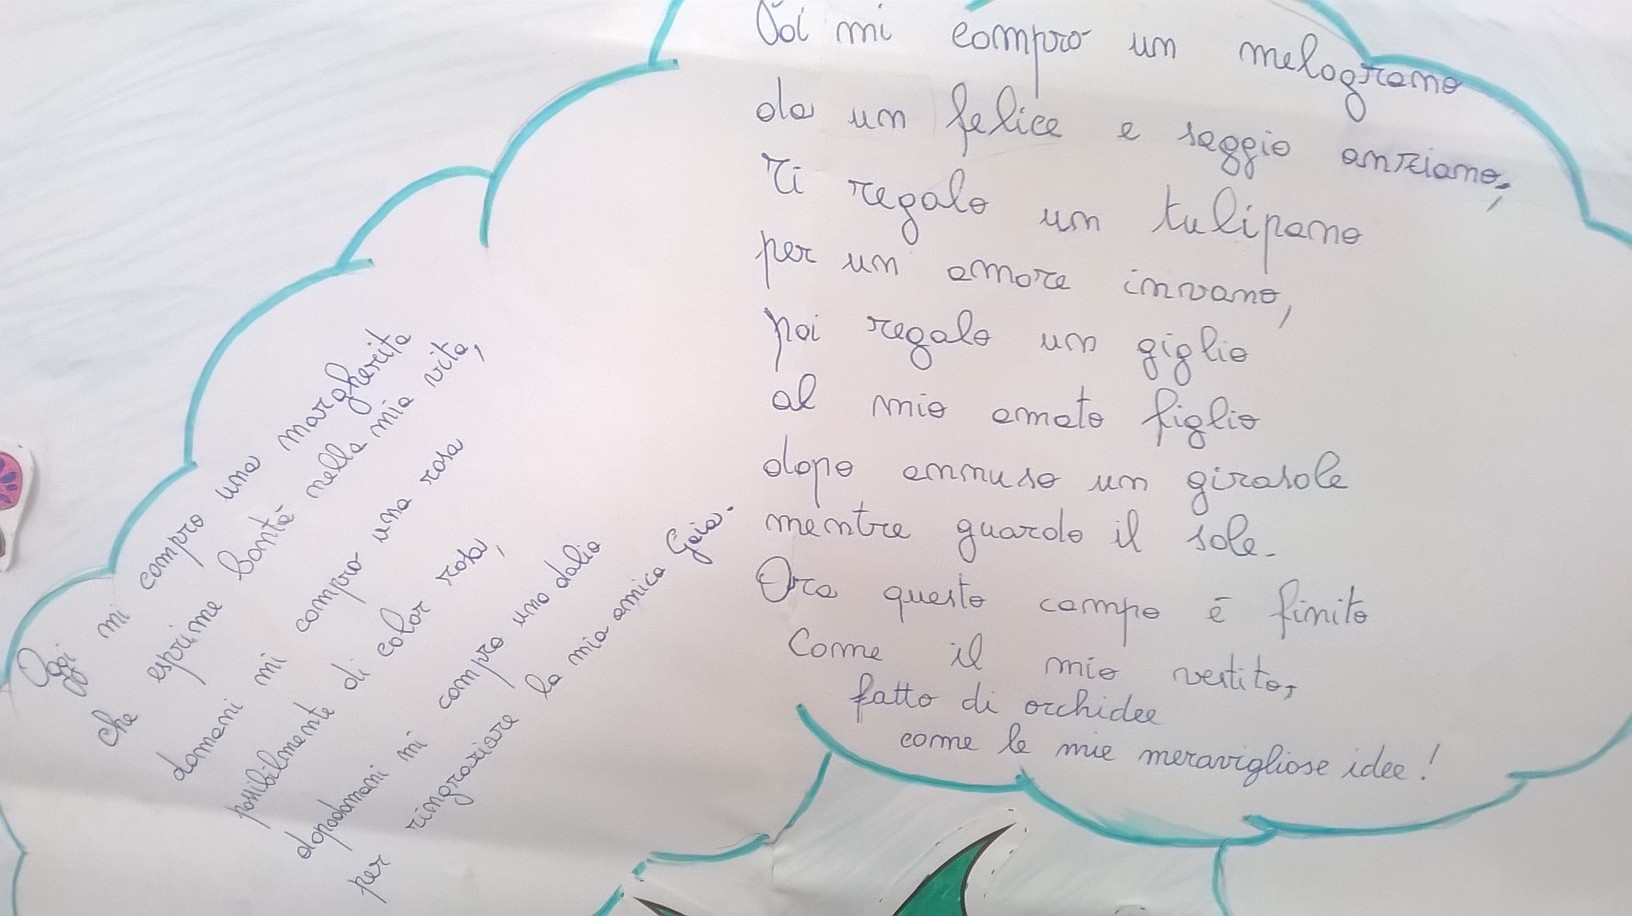 Oggi mi compro una margherita
che esprime bontà nella mia vita,
domani mi compro una rosa
possibilmente di color rosa,
dopodomani mi compro una dalia
per ringraziare la mia amica Gaia.
Poi mi compro un melograno
da un felice e saggio anziano,
Ti regalo un tulipano
per un amore invano,
poi regalo un giglio
al mio amato figlio
dopo annuso un girasole
mentre guardo il sole.
Ora questo campo è finito
Come il mio vestito,
fatto di orchidee
come le mie meravigliose idee!